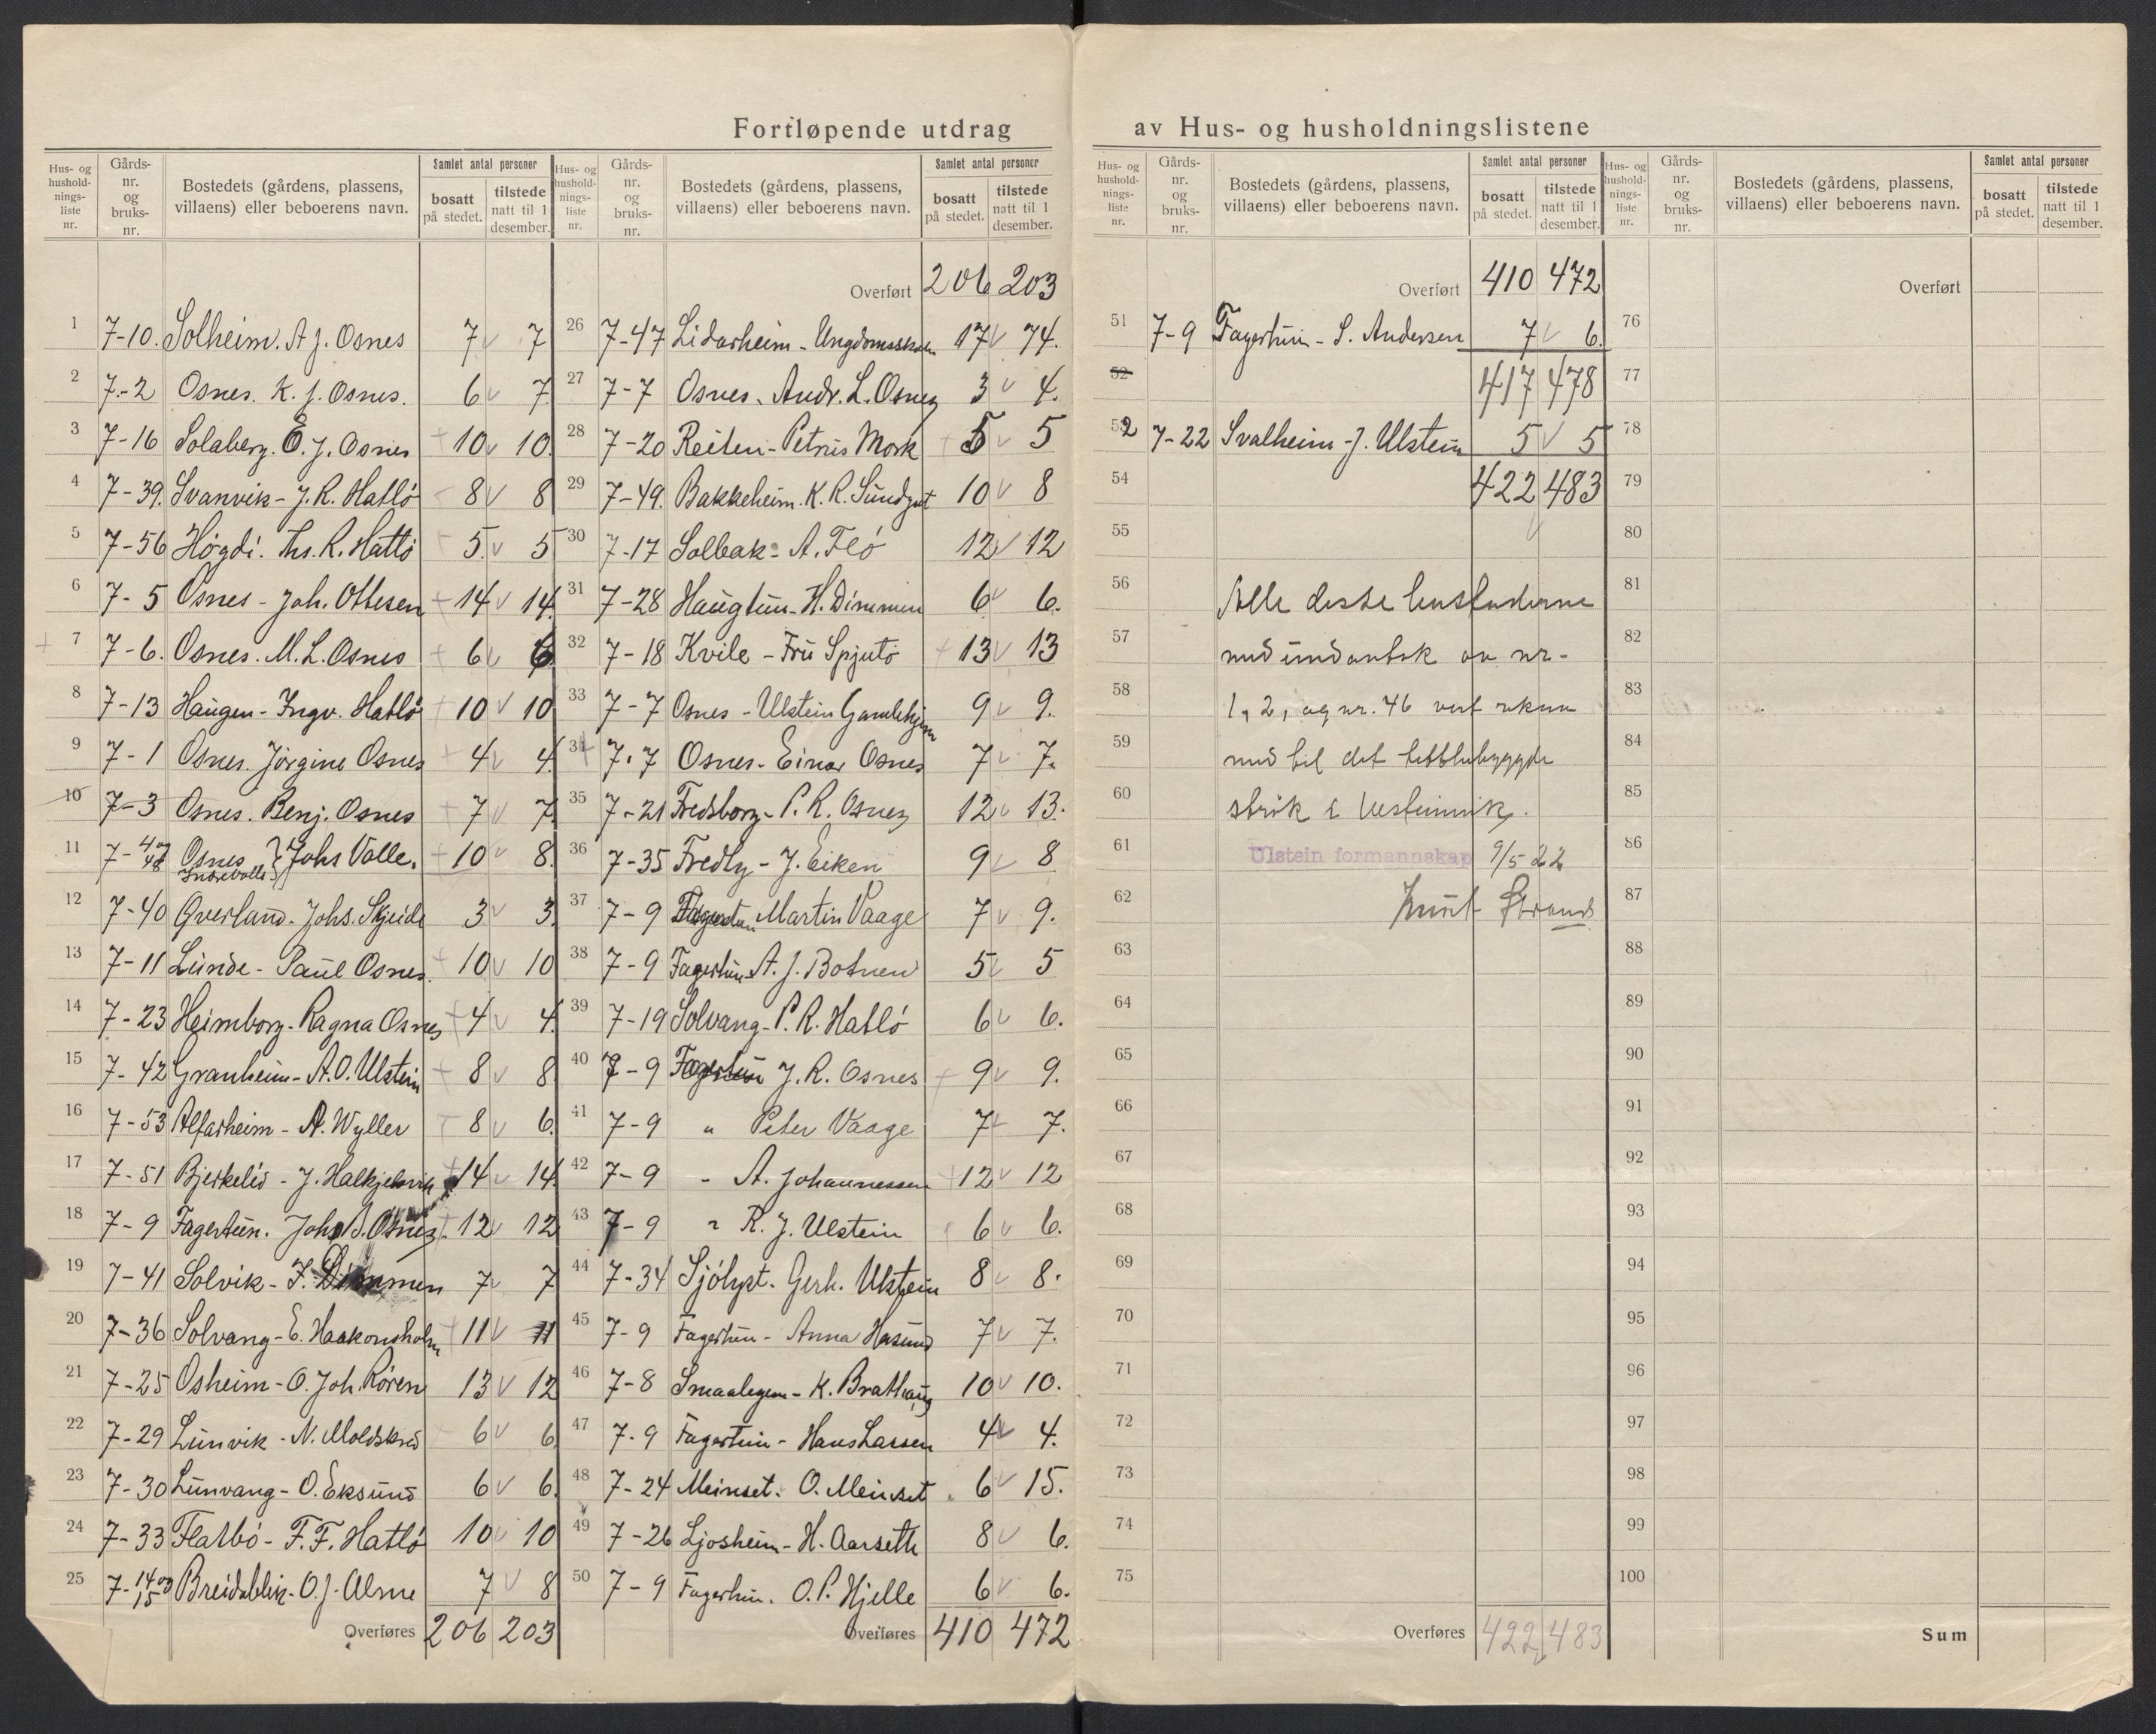 Fortløpende utdrag av Hus- og husholdningslistene
Hus- og hushold- nings- liste nr.
Gårds- nr. og bruks- nr.
Bostedets (gårdens, plassens, villaens) eller beboerens navn.
Samlet antal personer
bosatt på stedet.
tilstede natt til 1 desember.
1 7-10. Solheim. A J. Osnes 7 7
2 7-2 Osnes. K. J. Osnes. 6 7
3 7-16 Solaberg. E. J. Osnes 10 10
4 7-39. Svanvik - J. R. Hatlö 8 8
5 7-56 Høgdi. Ths. R. Hatlö 5 5
6 7-5 Osnes - Joh. Ottesen 14 14
7 7-6. Osnes. M. L. Osnes 6 6
8 7-13 Haugen - Ingv. Hatlö 10 10
9 7-1 Osnes. Jörgine Osnes 4 4
10 7-3 Osnes. Benj. Osnes 7 7
11 7-4 og 48 Osnes Indrevolle } Johs Valle. 10 8
12 7-40 Överland - Johs. Skjeide 3 3
13 7-11 Lunde - Paul Osnes. 10 10
14 7-23 Heimborg - Ragna Osnes 4 4
15 7-42 Granheim - A. O. Ulstein 8 8
16 7-53 Alfarheim - A. Wyller 8 6
17 7-51 Bjerkelid - J. Halkjelsvik 14 14
18 7-9 Fagertun. Johs J. Osnes 12 12
19 7-41 Solvik - J. Dimmen 7 7
20 7-36 Solvang - E. Haakonsholm 11 11
21 7-25 Osheim - O. Joh. Røren 13 12
22 7-29 Lunvik - N. Moldskred 6 6
23 7-30 Lunvang - O. Eksund 6 6
24 7-33 Flatbö - F. F. Hatlö 10 10
25 7-14 og 15 Breidablik - O. J. Alme 7 8
Overføres 206 203
Overført 206 203
26 7-47 Lidarheim - Ungdomsskulen 17 74.
27 7-7 Osnes. Andr. L. Osnes 3 4.
28 7-20 Reiten - Petrus Mork 5 5
29 7-49. Bakkeheim. K. R. Sundgot 10 8
30 7-17 Solbak - A. Flö 12 12
31 7-28 Haugtun - H. Dimmen 6 6.
32 7-18 Kvile - Fru Spjutö 13 13
33 7-7 Osnes - Ulstein Gamlehjem 9 9.
34 7-7 Osnes - Einar Osnes 7 7.
35 7-21 Fredsborg - P. R. Osnes 12 13.
36 7-35 Fredly - J. Eiken 9 8
37 7-9 Fagertun Martin Vaage 7 9.
38 7-9 Fagertun A. J. Botnen 5 5
39 7-19 Solvang - P. R. Hatlö 6 6.
40 7-9 Fagertun J. R. Osnes 9 9.
41 7-9 " Peter Vaage 7 7.
42 7-9 " A. Johannessen 12 12
43 7-9 " R. J. Ulstein 6 6.
44 7-34 Sjölyst. Gerh. Ulstein 8 8.
45 7-9 Fagertun - Anna Hasund 7 7.
46 7-8 Smaalegene - K. Brathaug 10 10.
47 7-9 Fagertun - Hans Larsen 4 4.
48 7-24 Meinset. O. Meinset 6 15.
49 7-26 Ljosheim - H. Aarseth 8 6.
50 7-9 Fagertun. O. P. Hjelle 6 6.
Overføres 410 472
Hus- og hushold- nings- liste nr.
Gårds- nr. og bruks- nr.
Bostedets (gårdens, plassens, villaens) eller beboerens navn.
Samlet antal personer
bosatt på stedet.
tilstede natt til 1 desember.
Overført 410 472
51 7-9 Fagertun - S. Andersen 7 6.
52 417 478
52 7-22 Svalheim - J. Ulstein 5 5
54 422 483
55
56 Alle disse husfaderne
57 med undantak av nr-
58 1, 2, og nr. 46 vert rekna
59 med til det tettbebyggde
60 strök i
61 Ulstein formannskap 9/5 22
62 Knut Strand
63
64
65
66
67
68
69
70
71
72
73
74
75
Overføres 422 483
Overført
76
77
78
79
80
81
82
83
84
85
86
87
88
89
90
91
92
93
94
95
96
97
98
99
100
Sum